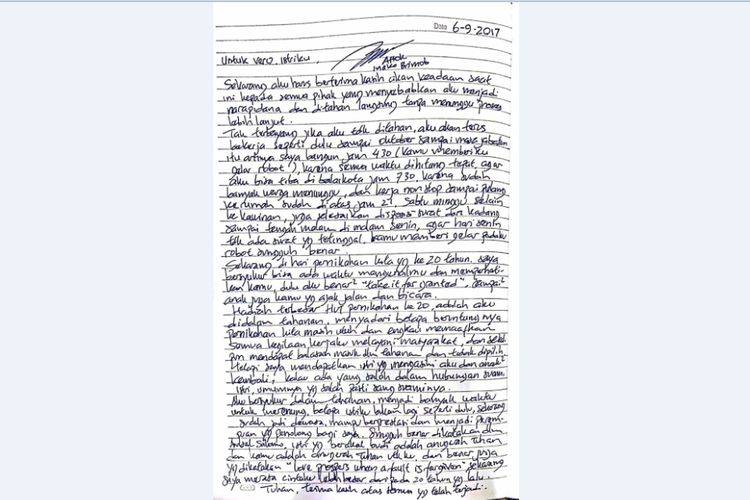 Date 6-9-2017
Untuk vero, istriku
Ahok
Mako Brimob
Sekarang aku harus berterima kasih akan keadaan saat
ini kepada semua pihak yang menyebabkan aku menjadi
narapidana dan ditahan langsung tanpa menunggu proses
lebih lanjut.
Tak terbayang jika aku tdk ditahan, aku akan terus
bekerja seperti dulu sampai oktober sampai masa jabatan
itu artinya saya bangun jam 430 (kamu memberiku
gelar robot), karena semua waktu dihitung tepat, agar
aku bisa tiba di balaikota jam 730, karena sudah
banyak warga menunggu, dan kerja non stop sampai pulang
ke rumah sudah di atas jam 21, sabtu minggu selain
ke kawinan, juga selesaikan disposisi surat dan kadang
sampai tengah malam di malam senin, agar hari senin
tdk ada surat yg tertinggal, kamu memberi gelar padaku
robot sungguh benar.
Sekarang di hari pernikahan kita yg ke 20 tahun, saya
bersyukur bisa ada waktu mengenalmu dan memperhati
kan kamu, dulu aku benar² "take it for granted" sampai²
anak juga kamu yg ajak jalan dan bicara.
Hadiah terbesar HUT pernikahan ke 20, adalah aku
didalam tahanan, menyadari betapa beruntungnya
pernikahan kita masih utuh dan engkau memaafkan
semua kegilaan kerjaku melayani masyarakat, dan
pun mendapat balasan masuk tahanan dan tidak dipilih
lagi saya mendapatkan istri yg mengasihi aku dan anak²
kembali, kalau ada yang salah dalam hubungan suami
istri, umumnya yg salah pasti sang suaminya.
Aku bersyukur dalam tahanan, menjadi banyak waktu
untuk merenung, betapa istriku bukan lagi seperti dulu, sekarang
sudah jadi dewasa, mampu berprestasi dan menjadi perem
puan yg penolong bagi saya. Sungguh benar dikatakan
Amsal Salomo, istri yg berakal budi adalah anugerah Tuhan
dan kamu adalah anugerah Tuhan utkku, dan benar juga
yg dikatakan "love prospers when a fault is forgiven" sekarang
saya merasa cintaku lebih besar daripada 20 tahun yg lalu.
Tuhan, terima kasih atas semua yg telah terjadi.